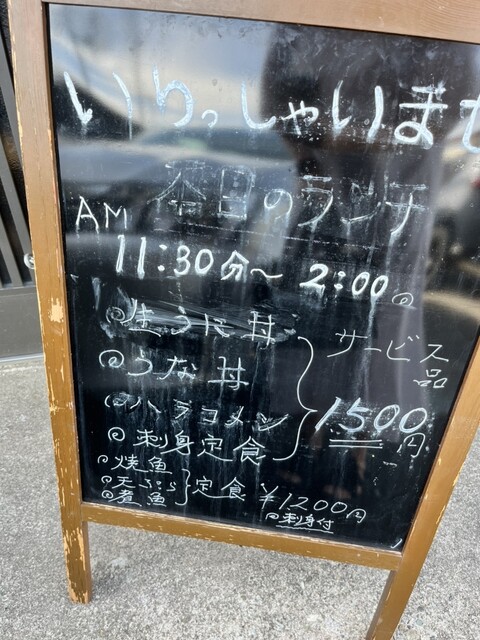 いらっしゃいませ
本日のランチ
AM 11:30分～2:00
生うに丼
うな丼
ハラコメシ
刺身定食
サービス品
1500円
焼魚
天ぷら
煮魚
定食 ¥1200円
刺身付